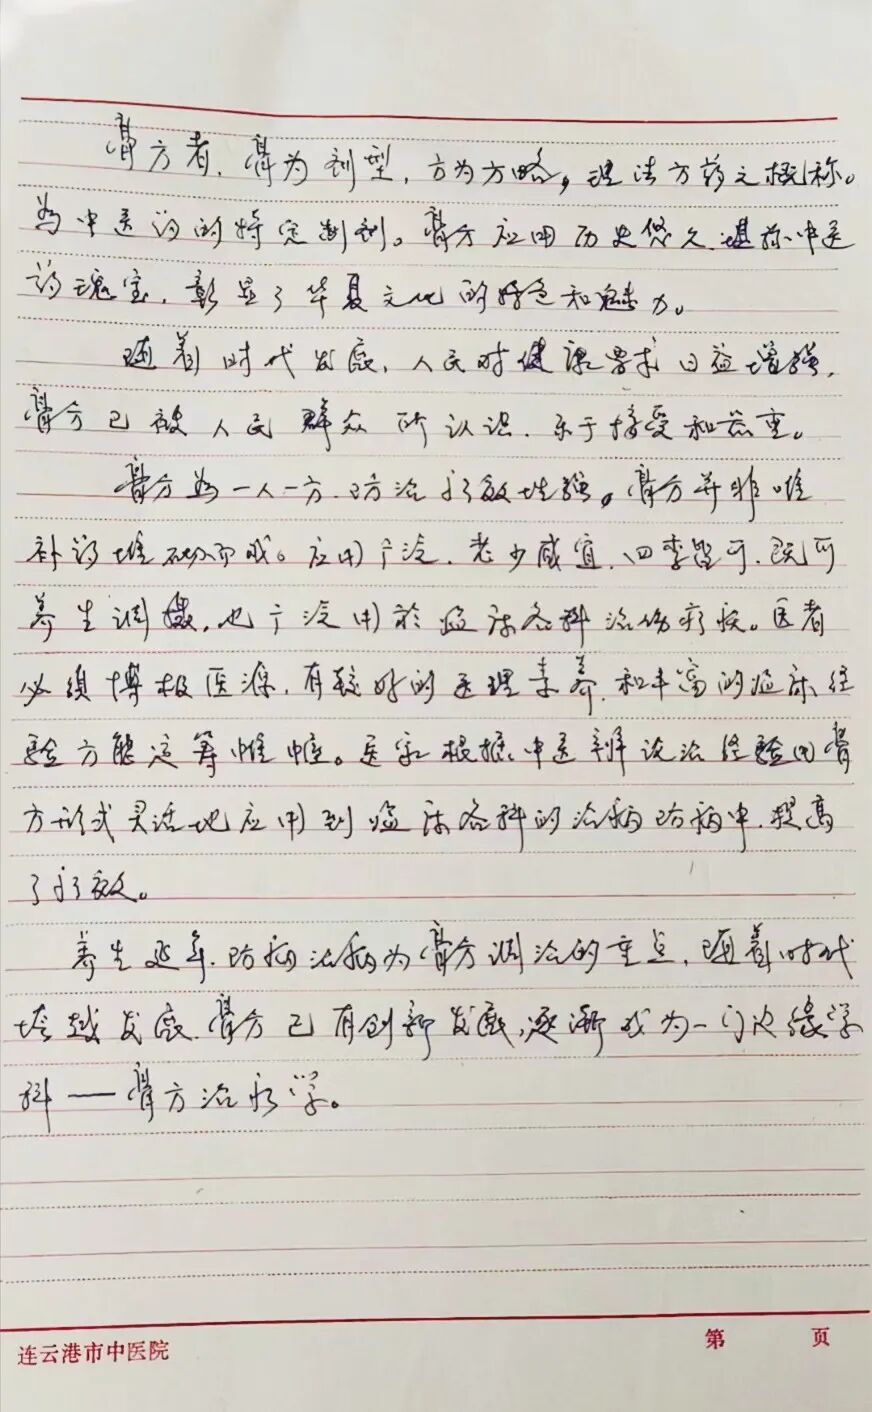 膏方者，膏为剂型，方为方略，理法方药之概称。
为中医药的特定制剂。膏方应用历史悠久，堪称中医
药瑰宝，彰显了华夏文化的特色和魅力。
随着时代发展，人民对健康要求日益增强，
膏方已被人民群众所认识、乐于接受和兹重。
膏方为一人一方，防治疗效性强。膏方并非唯
补药堆砌而成。应用广泛，老少咸宜，四季皆可，既可
养生调摄，也广泛用于临床各科治伤疗疾。医者
必须博极医源，有较好的医理素养，和丰富的临床经
验方能运筹帷幄。医家根据中医辨证论治经验以膏
方形式灵活地应用到临床各科的治病防病中，提高
了疗效。
养生延年，防病治病为膏方调治的重点，随着时代
跨越发展，膏方已有创新发展，逐渐成为一门边缘学
科——膏方治疗学。
连云港市中医院
第 页